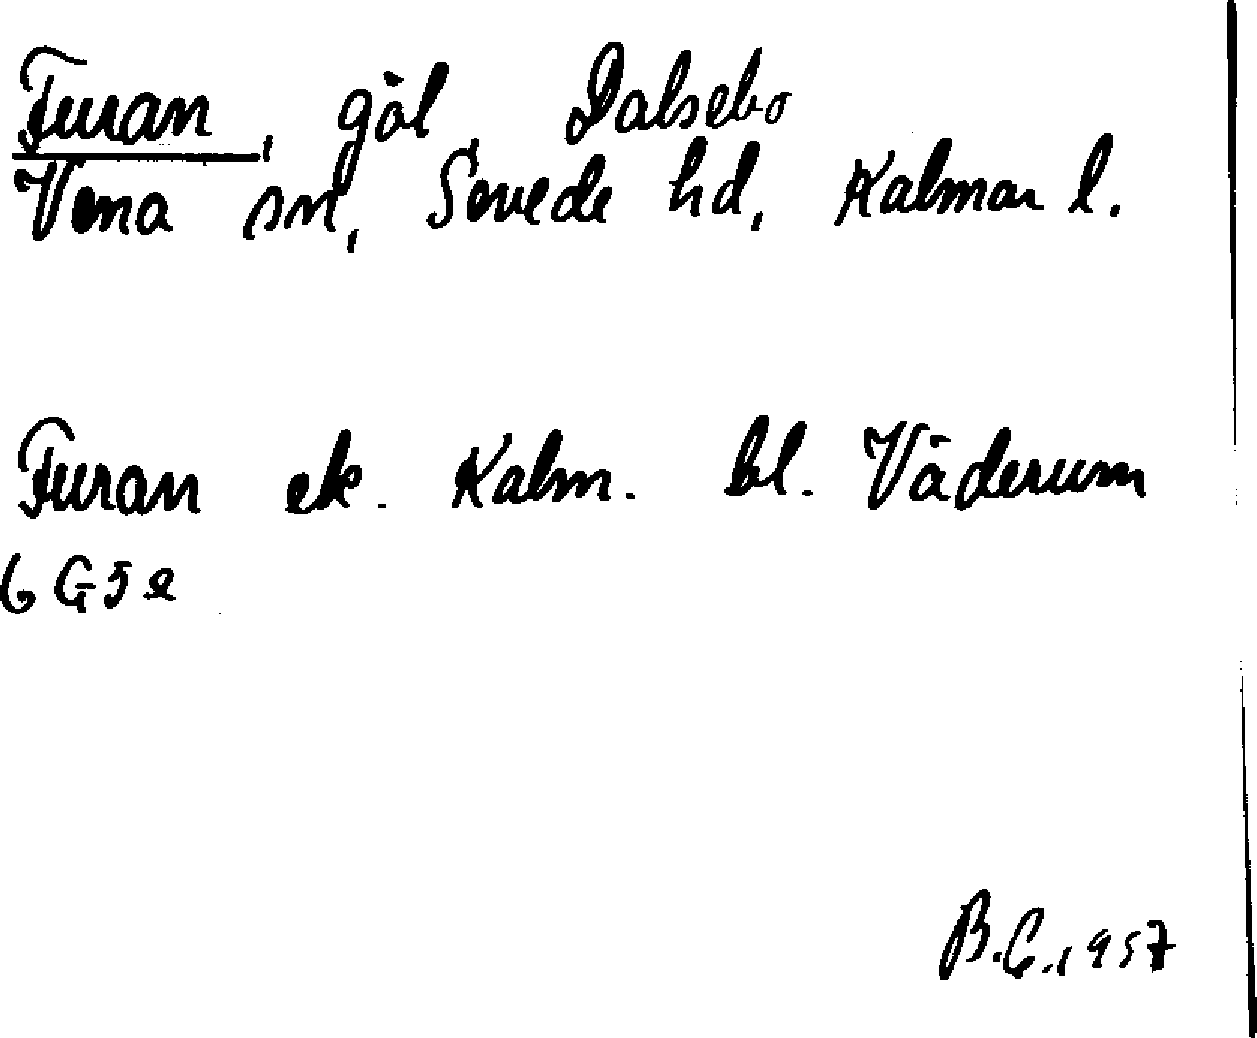 Furan, göl Dalsebo
Vena sn, Sevede hd, Kalmar l.
Furan ek. Kalm. bl. Väderum
6 G 5 e
B.G. 1957